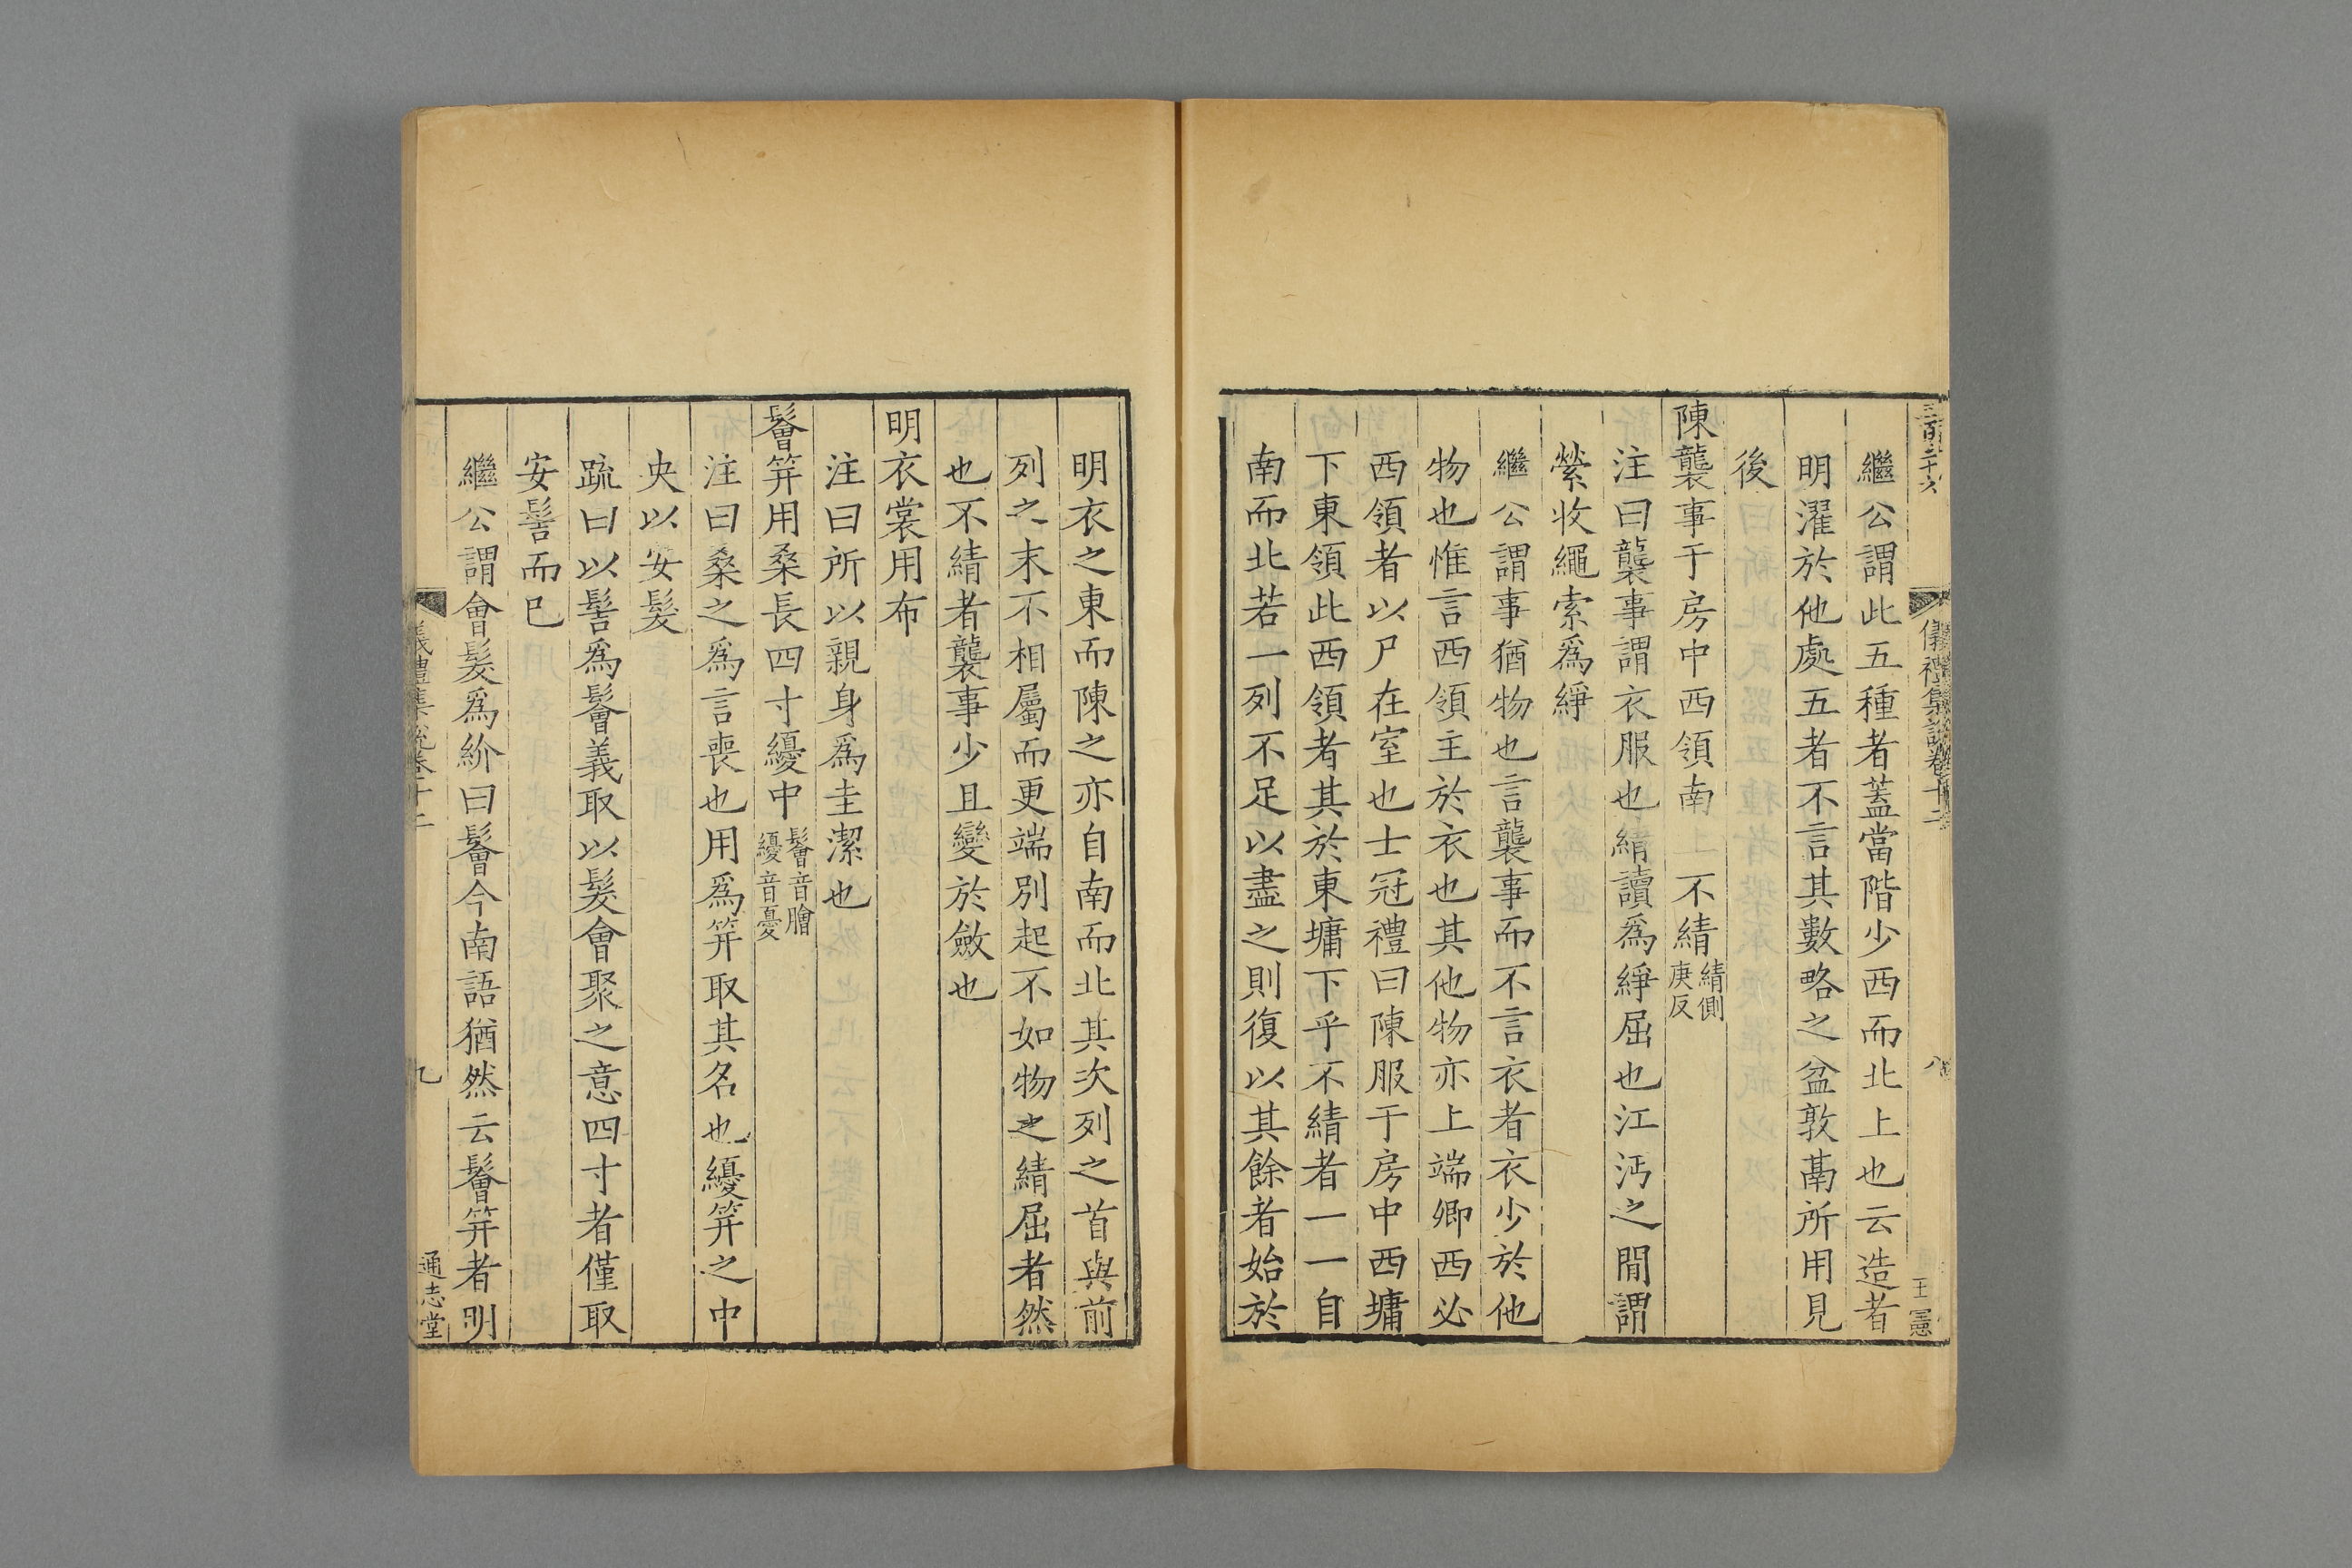 三百二十六
儀禮集說卷十二
八
王憲
繼公謂此五種者蓋當階少西而北上也云造者
明濯於他處五者不言其數略之盆敦鬲所用見
後
陳襲事于房中西領南上不綪綪側庚反
注曰襲事謂衣服也綪讀爲綪屈也江沔之閒謂
縈收繩索爲綪
繼公謂事猶物也言襲事而不言衣者衣少於他
物也惟言西領主於衣也其他物亦上端鄉西必
西領者以尸在室也士冠禮曰陳服于房中西墉
下東領此西領者其於東墉下乎不綪者一一自
南而北若一列不足以盡之則復以其餘者始於
明衣之東而陳之亦自南而北其次列之首與前
列之末不相屬而更端別起不如物之綪屈者然
也不綪者襲事少且變於斂也
明衣裳用布
注曰所以親身爲圭潔也
鬠笄用桑長四寸纋中鬠音膾纋音憂
注曰桑之爲言喪也用爲笄取其名也纋笄之中
央以安髮
疏曰以髻爲鬠義取以髮會聚之意四寸者僅取
安髻而已
繼公謂會髮爲紒曰鬠今南語猶然云鬠笄者明
儀禮集說卷十二
九
通志堂